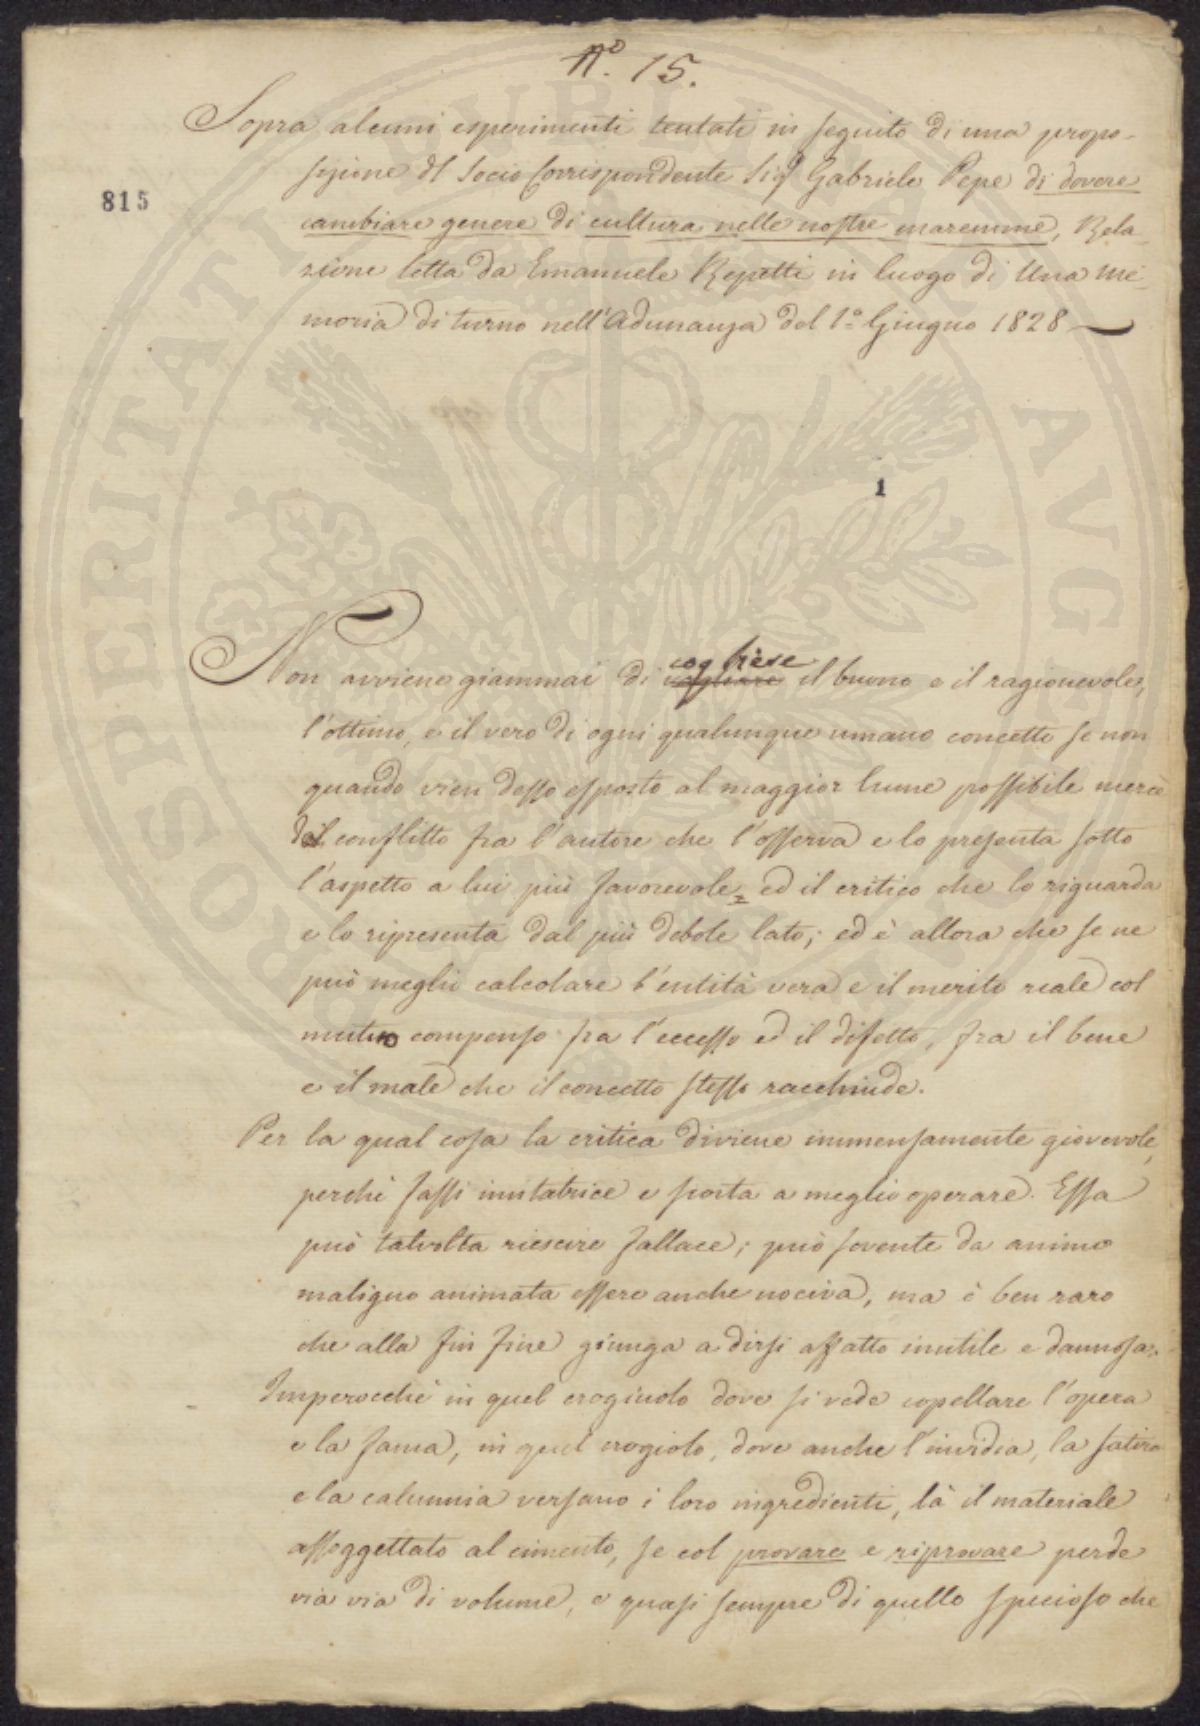 N.º 15.
Sopra alcuni esperimenti tentati in seguito di una propo-
sizione del Socio Corrispondente Sigr Gabriele Pepe di dovere
815
cambiare genere di cultura nelle nostre maremme, Rela-
zione letta da Emanuele Repetti in luogo di Una me-
moria di turno nell'Adunanza del 1.º Giugno 1828
1
Non avviene giammai di vagliare il buono e il ragionevole,
cogliere
l'ottimo, e il vero di ogni qualunque umano concetto se non
quando vien desso esposto al maggior lume possibile mercè
del conflitto fra l'autore che l'osserva e lo presenta sotto
l'aspetto a lui più favorevole, ed il critico che lo riguarda
e lo ripresenta dal più debole lato; ed è allora che se ne
può meglio calcolare l'entità vera e il merito reale col
mutuo compenso fra l'eccesso ed il difetto, fra il bene
e il male che il concetto stesso racchiude.
Per la qual cosa la critica diviene immensamente giovevole,
perchè fassi imitatrice e scorta a meglio operare. Essa
può talvolta riescire fallace; può sovente da animo
maligno animata essere anche nociva, ma è ben raro
che alla fin fine giunga a dirsi affatto inutile e dannosa.
Imperocchè in quel crogiuolo dove si vede copellare l'opera
e la fama, in quel crogiolo, dove anche l'invidia, la satira
e la calunnia versano i loro ingredienti, là il materiale
assoggettato al cimento, se col provare e riprovare perde
via via di volume, e quasi sempre di quello specioso che
PROSPERITATI PUBLICAE AUGENDAE